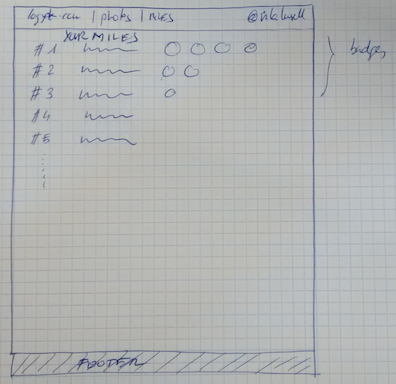 | photos | miles
YOUR MILES
#1
#2
#3
#4
#5
badges
FOOTER